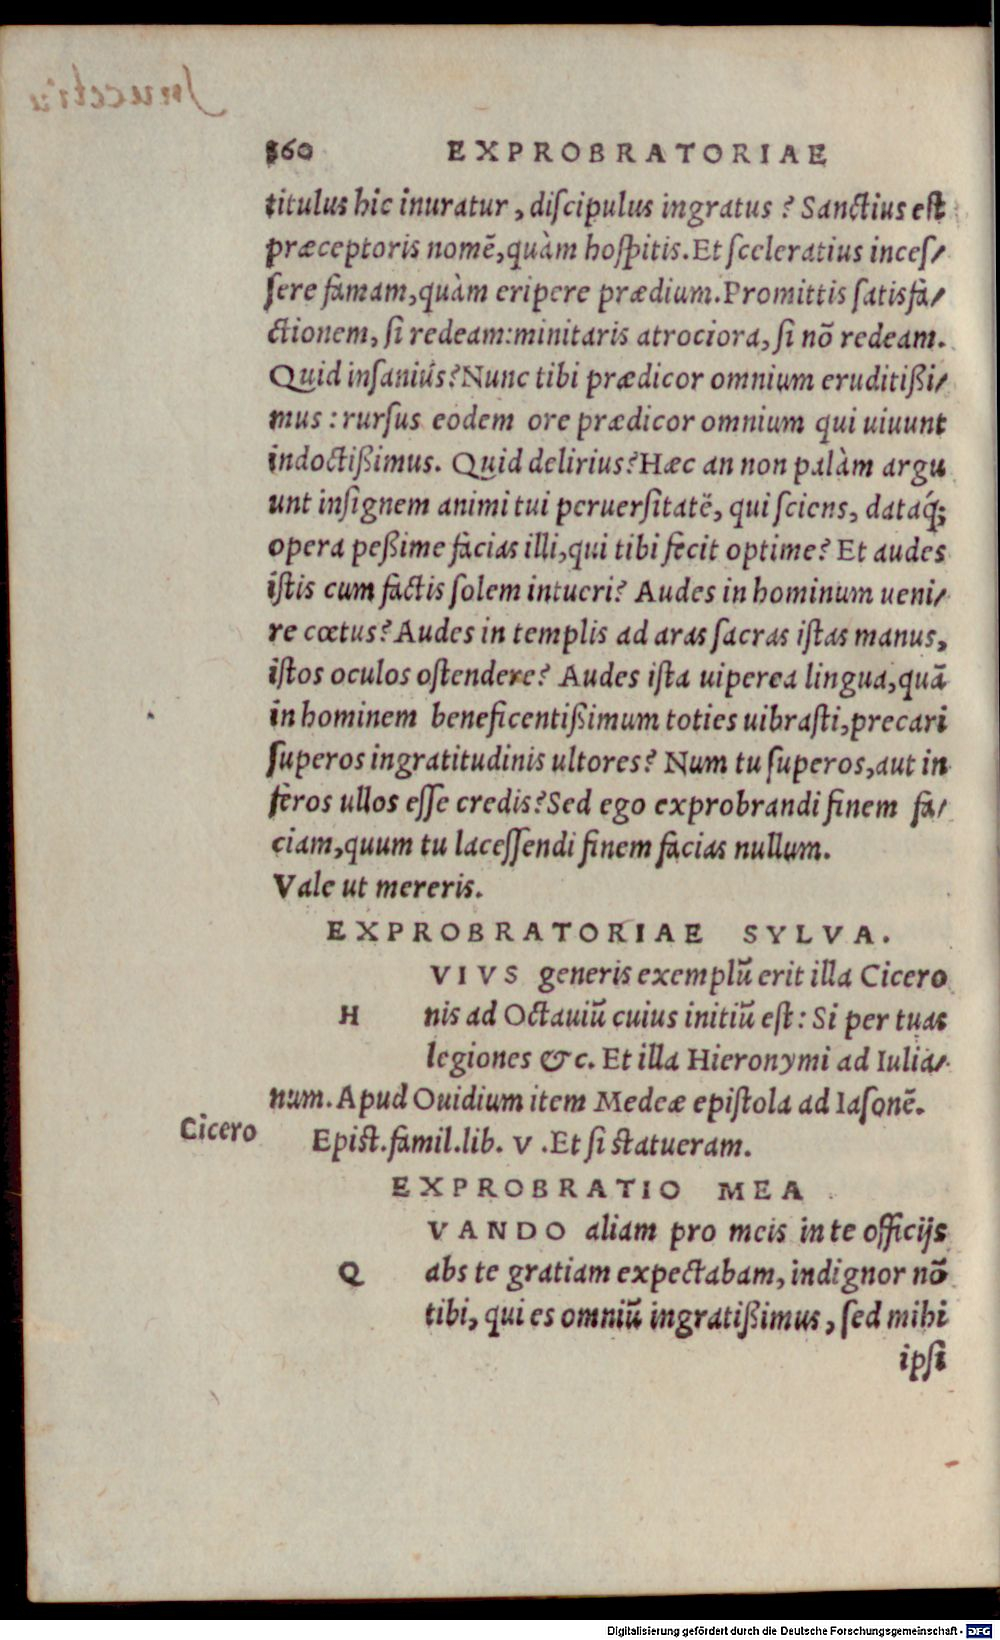 360 EXPROBRATORIAE
titulus hic inuratur, diſcipulus ingratus? Sanctius est
præceptoris nomē, quàm hoſpitis. Et ſceleratius inceſ/
ſere famam, quàm eripere prædium. Promittis ſatisfa/
ctionem, ſi redeam: minitaris atrociora, ſi nō redeam.
Quid inſaniús? Nunc tibi prædicor omnium eruditißi/
mus: rurſus eodem ore prædicor omnium qui uiuunt
indoctißimus. Quid delirius? Hæc an non palàm argu
unt inſignem animi tui peruerſitatē, qui ſciens, dataq́;
opera peßime facias illi, qui tibi fecit optime? Et audes
iſtis cum factis ſolem intueri? Audes in hominum ueni/
re cœtus? Audes in templis ad aras ſacras iſtas manus,
iſtos oculos oſtendere? Audes iſta uiperea lingua, quā
in hominem beneficentißimum toties uibraſti, precari
ſuperos ingratitudinis ultores? Num tu ſuperos, aut in
feros ullos eſſe credis? Sed ego exprobrandi finem fa/
ciam, quum tu laceſſendi finem facias nullum.
Vale ut mereris.
EXPROBRATORIAE SYLVA.
H VIVS generis exemplū erit illa Cicero
nis ad Octauiū cuius initiū eſt: Si per tuas
legiones &c. Et illa Hieronymi ad Iulia/
num. Apud Ouidium item Medeæ epiſtola ad Iaſonē.
Cicero Epiſt. famil. lib. V. Et ſi ſtatueram.
EXPROBRATIO MEA
Q VANDO aliam pro meis in te officijs
abs te gratiam expectabam, indignor nō
tibi, qui es omniū ingratißimus, ſed mihi
ipſi
Digitalisierung gefördert durch die Deutsche Forschungsgemeinschaft - DFG